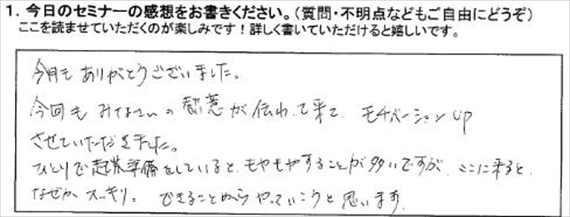 1. 今日のセミナーの感想をお書きください。(質問・不明点などもご自由にどうぞ)
ここを読ませていただくのが楽しみです！詳しく書いていただけると嬉しいです。
今月も ありがとうございました。
今回も みなさんの 熱意が 伝わって来て、モチベーションup
させていただきました。
ひとりで起業準備をしていると、モヤモヤすることが多いですが、ここに来ると、
なぜか スッキリ。 できることから やっていこうと思います